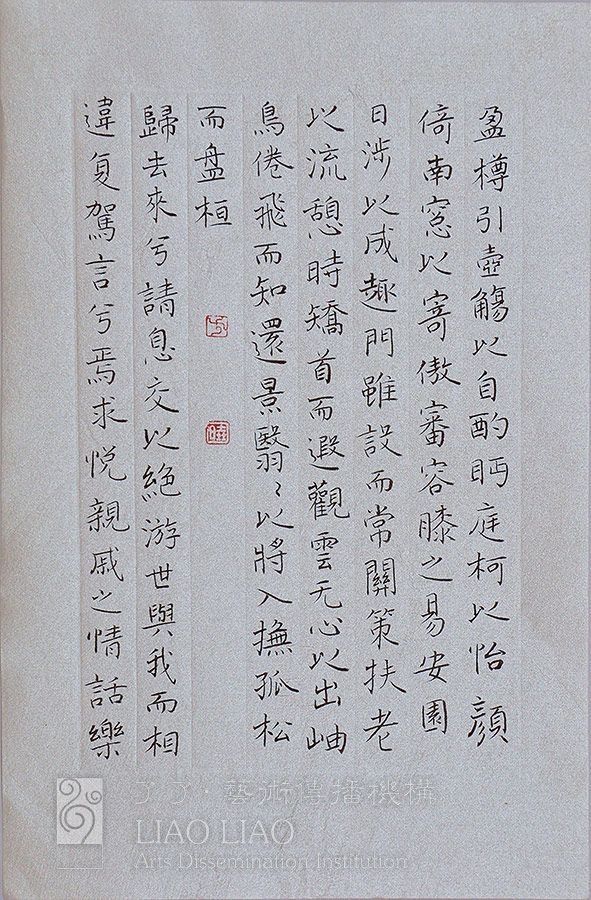 盈樽引壺觴以自酌眄庭柯以怡顏
倚南窓以寄傲審容膝之易安園
日涉以成趣門雖設而常關策扶老
以流憩時矯首而遐觀雲无心以出岫
鳥倦飛而知還景翳〻以將入撫孤松
而盤桓
歸去來兮請息交以絕游世與我而相
違复駕言兮焉求悅親戚之情話樂
了了·藝術傳播機構
LIAO LIAO
Arts Dissemination Institution